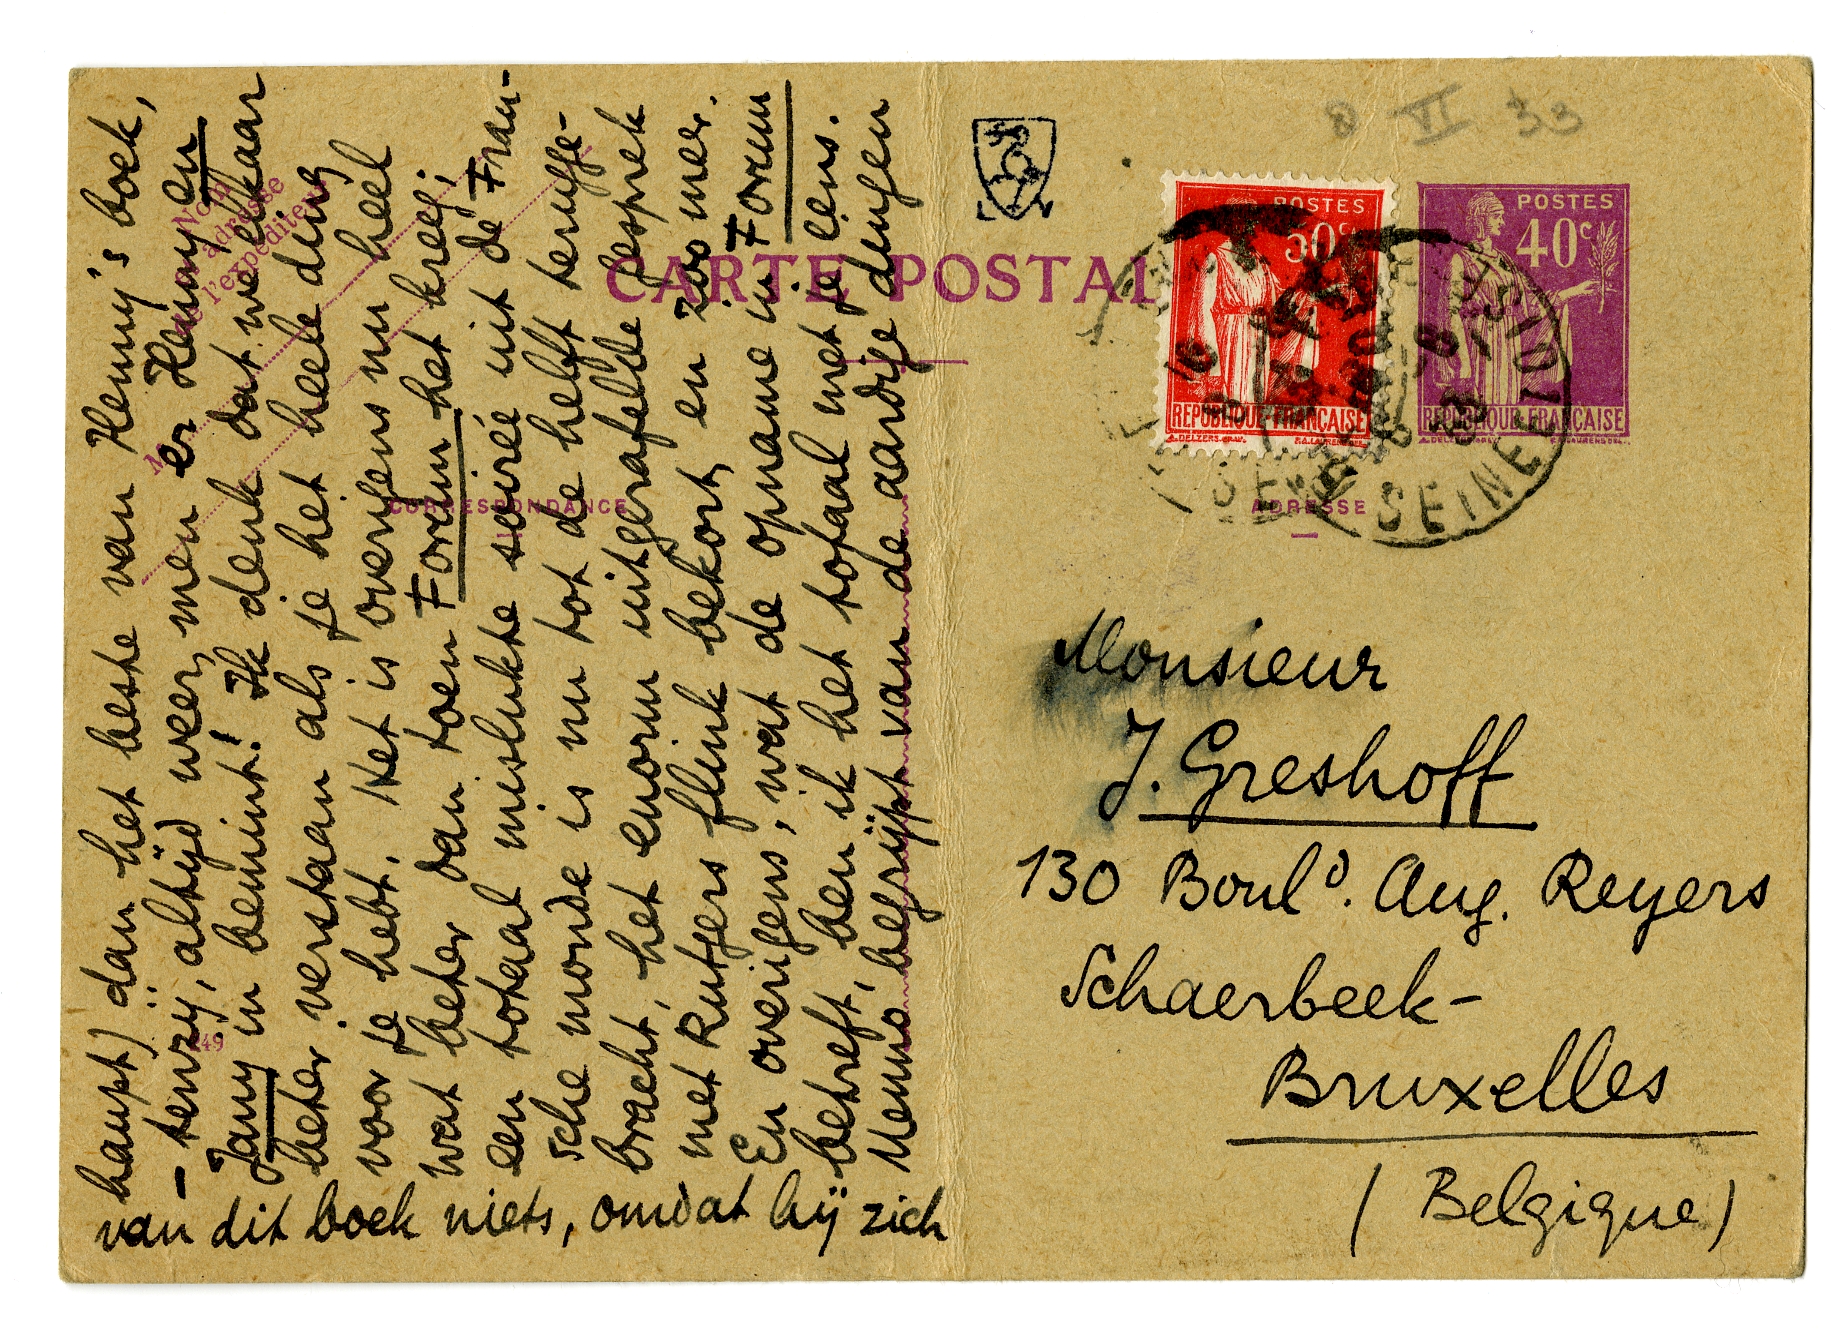 haupt) dan het beste van Henny's boek,
– tenzy, altijd weer, men er Henny en
Jany in bemint! Ik denk dat we elkaar
beter verstaan als je het heele ding
voor je hebt. Het is overigens nu heel
wat beter dan toen Forum het kreeg;
een totaal mislukte soirée uit de Fran-
sche monde is nu tot de helft terugge-
bracht, het enorm uitgerafelde gesprek
met Rutgers flink bekort, en zoo meer.
En overigens, wat de opname in Forum
betreft, ben ik het totaal met je eens.
Menno begrijpt van de aardige dingen
van dit boek niets, omdat hij zich
8 VI 33
L V
CARTE POSTALE
Nom
et adresse
de l'expéditeur
M
CORRESPONDANCE
ADRESSE
249
POSTES
50c
REPUBLIQUE FRANÇAISE
POSTES
40c
REPUBLIQUE FRANÇAISE
SEINE
Monsieur
J. Greshoff
130 Boul^d. Aug. Reyers
Schaerbeek-
Bruxelles
(Belgique)